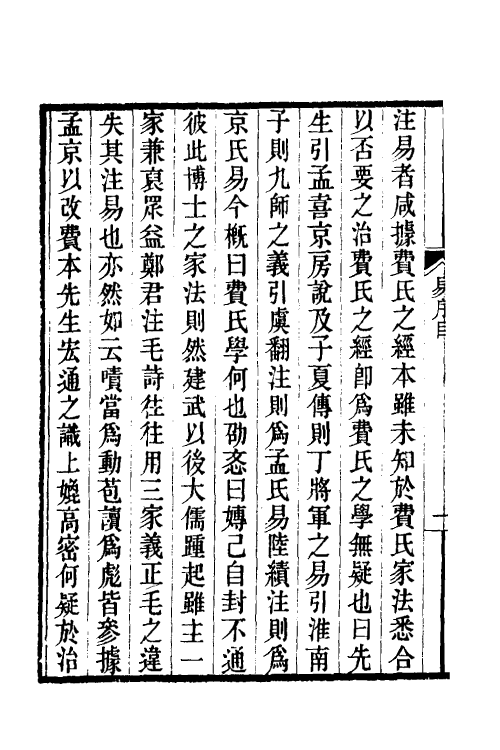 注易者咸據費氏之經本雖未知於費氏家法悉合
以否要之治費氏之經卽爲費氏之學無疑也曰先
生引孟喜京房說及子夏傳則丁將軍之易引淮南
子則九師之義引虞翻注則爲孟氏易陸績注則爲
京氏易今槪曰費氏學何也劭忞曰嫥己自封不通
彼此博士之家法則然建武以後大儒踵起雖主一
家兼裒眾益鄭君注毛詩徃徃用三家義正毛之違
失其注易也亦然如云嘖當爲動苞讀爲彪皆參據
孟京以改費本先生宏通之識上媲高密何疑於治
易序目